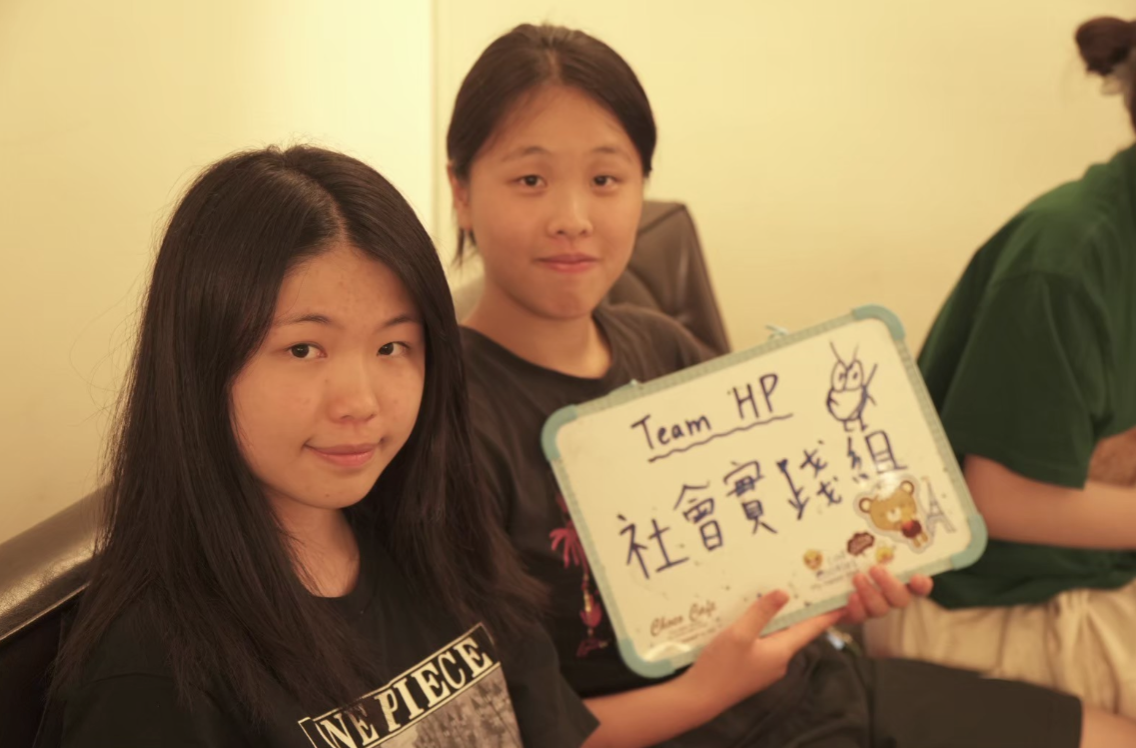 Team HP
社會實踐組
Choco Cafe
ONE PIECE